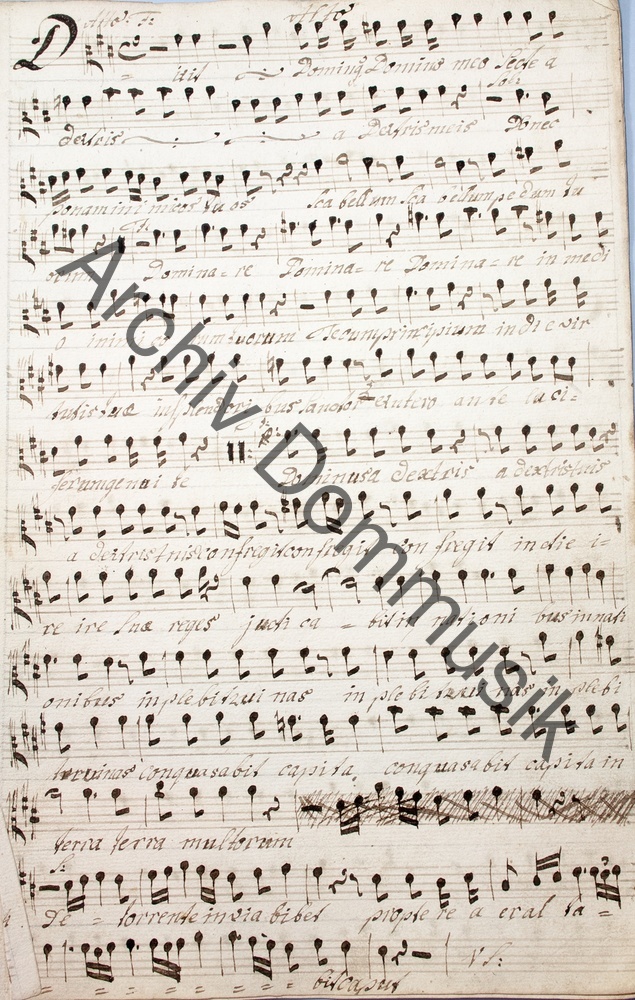 Alto
D
ixit Dominus Domino meo sede a
Sol:
dextris a dextris meis Donec
ponam inimicos tuos scabellum scabellum pedum tu
Domina = re Domina = re Domina = re in medi
o inimicorum tuorum Tecum principium in die vir
tutis tuæ in splendori bus Sanctor: ex utero ante luci =
ferum genui te 11 Dominus a dextris a dextris tuis
a dextris tuis confregit confregit confregit in die i =
re iræ suæ reges judi ca = bit in nationi bus in nati
onibus implebit rui nas implebit rui nas implebi
t ruinas conquasabit capita conquasabit capita in
terra terra multorum
S:
De = torrente in via bibet propte re a exal ta =
= = = = = = = = bit caput
V S:
Archiv Dommusik